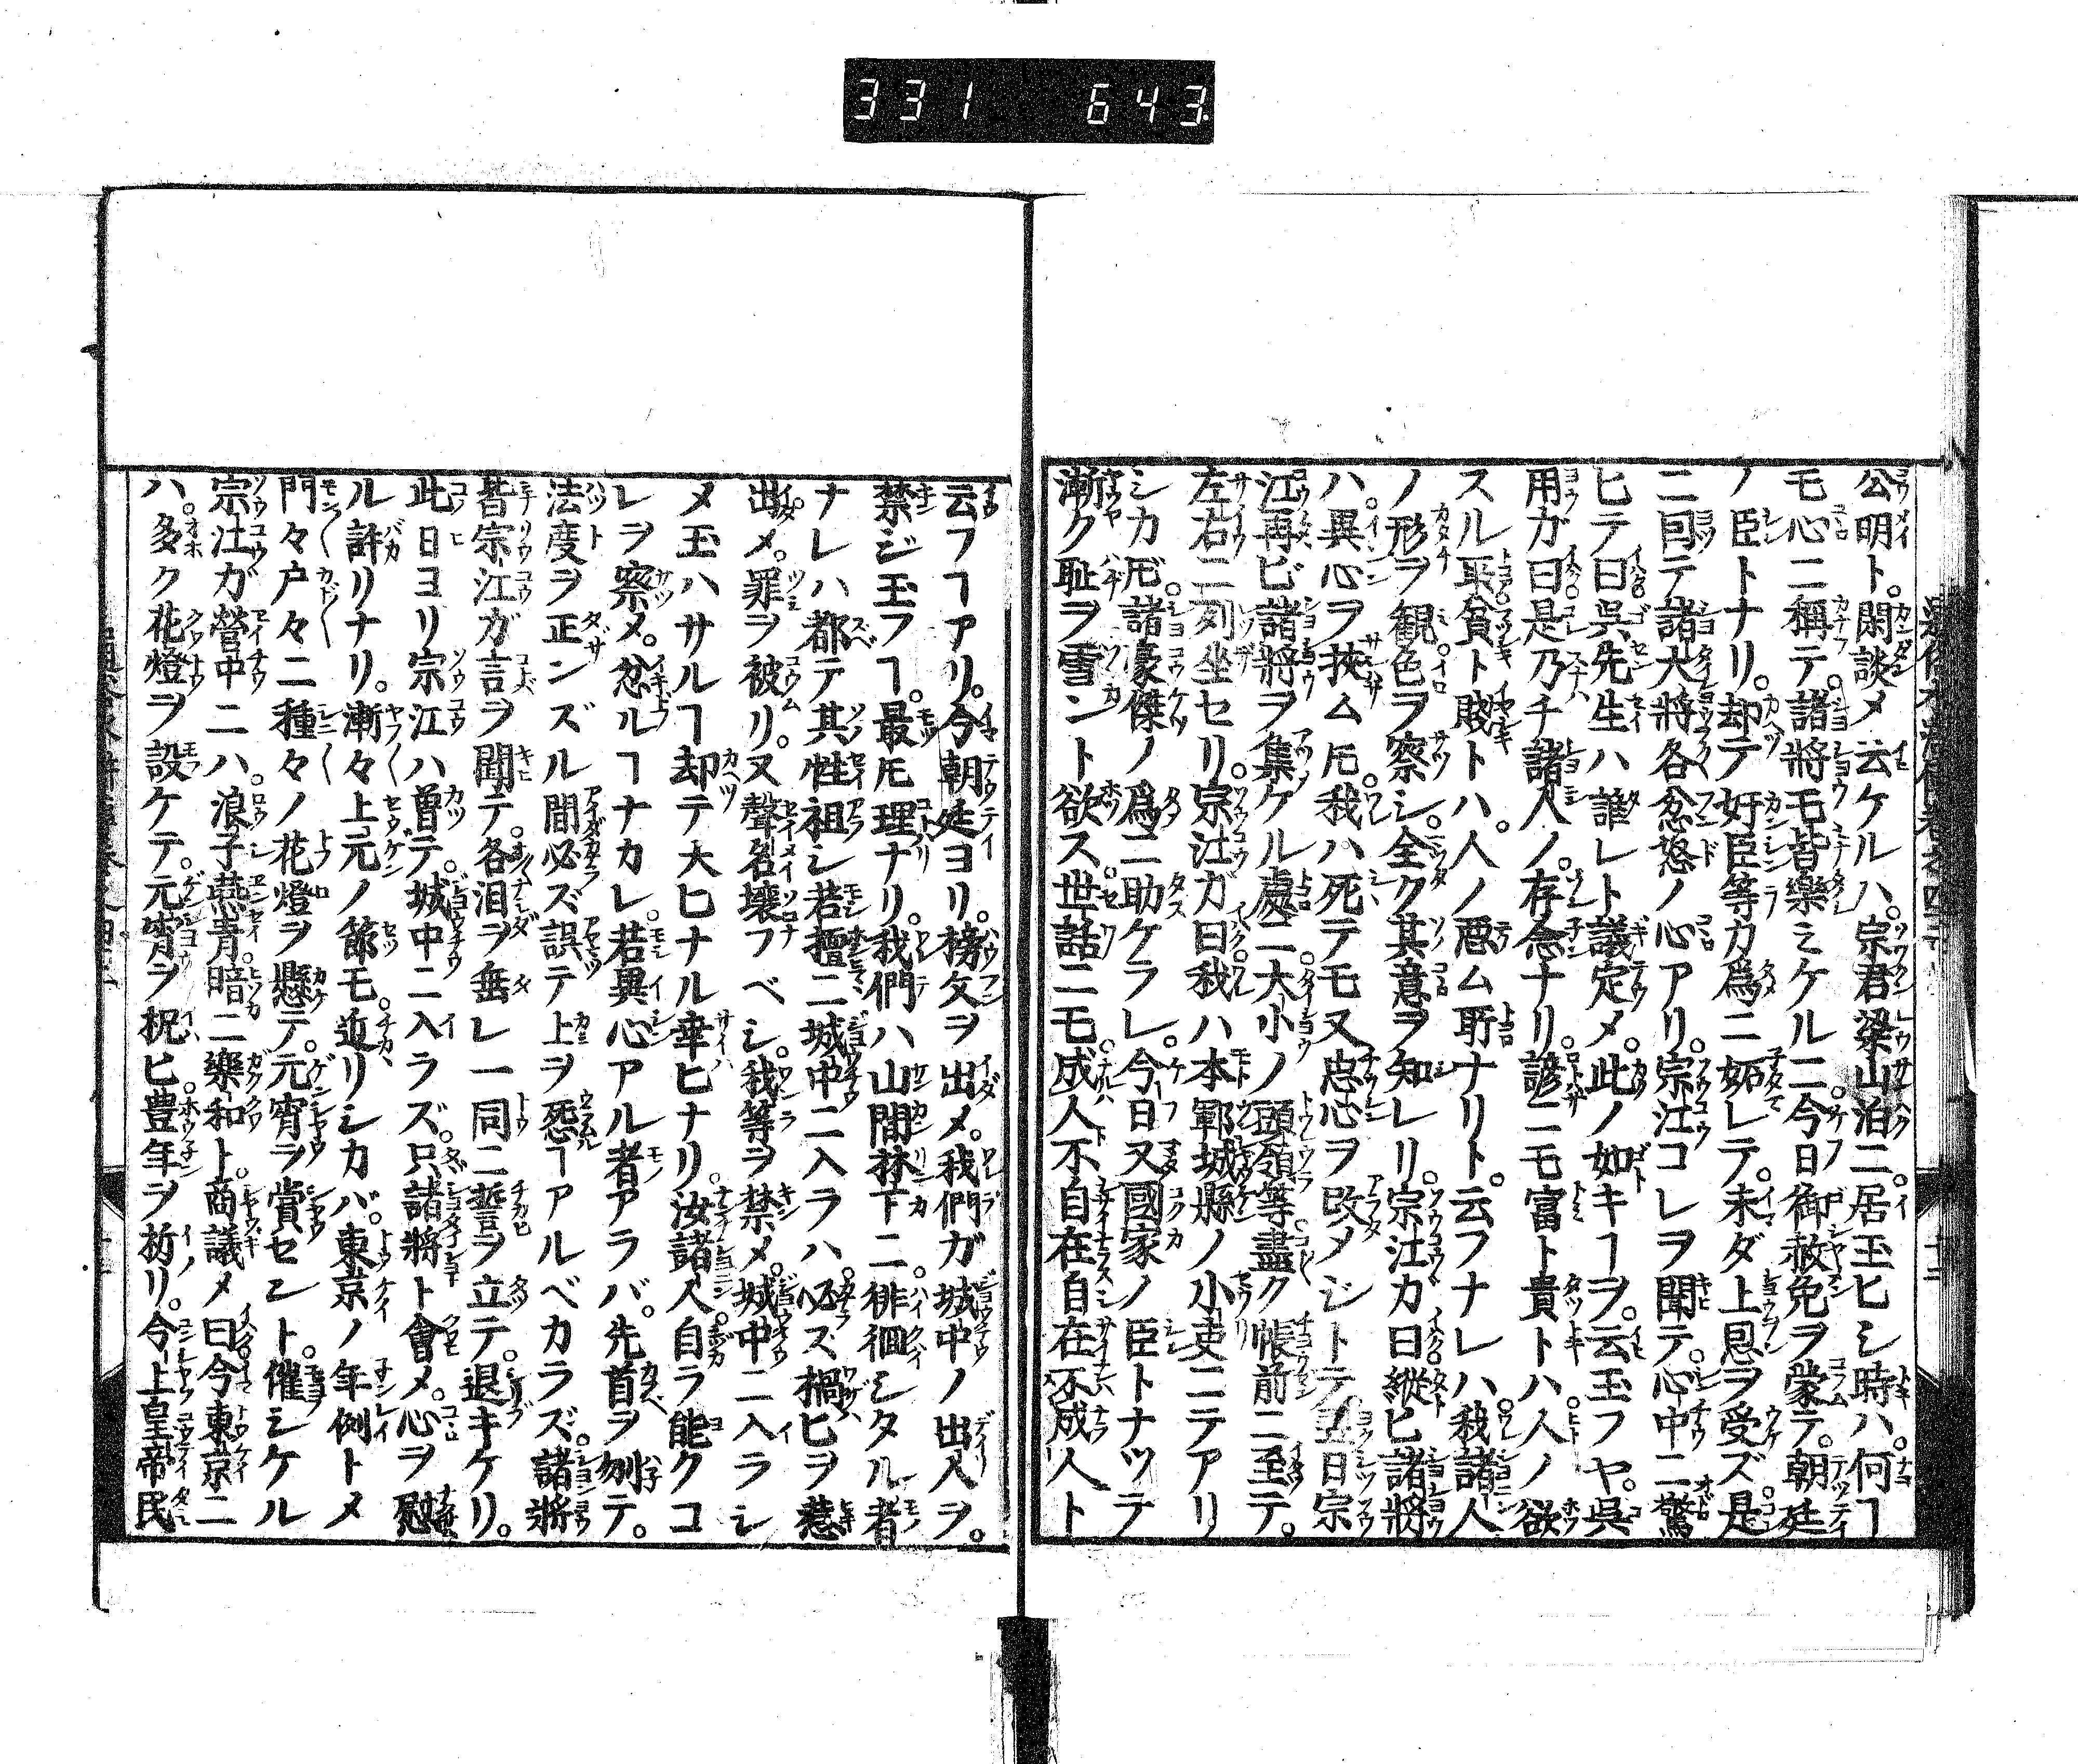 331 643
公明ト。閑談メ云ケルハ。宗君梁山泊ニ。居玉ヒシ時ハ。何ヿ
モ心ニ稱テ。諸將モ皆樂ミケルニ。今日御赦免ヲ蒙テ。朝廷
ノ臣トナリ。却テ奸臣等カ爲ニ妬レテ。未ダ上恩ヲ受ズ。是
ニ因テ諸大將各忿怒ノ心アリ。宗江コレヲ聞テ。心中ニ驚
ヒテ曰呉先生ハ誰レト議定メ。此ノ如キヿヲ。云玉フヤ。呉
用ガ曰是乃チ諸人ノ。存念ナリ。諺ニモ富ト貴トハ人ノ欲
スル所貧ト賤トハ。人ノ惡ム所ナリト。云フナレハ。我諸人
ノ形ヲ観。色ヲ察シ。全ク其意ヲ知レリ。宗江カ曰縦ヒ諸將
ハ。異心ヲ挾ム𪜈。我ハ死テモ又忠心ヲ改メジトテ翌日宗
江再ビ諸將ヲ集ケル處ニ。大小ノ頭領等盡ク帳前ニ至テ。
左右ニ列坐セリ。宗江カ曰我ハ本鄆城縣ノ小吏ニテアリ
シカ𪜈。諸豪傑ノ爲ニ助ケラレ。今日又國家ノ臣トナツテ
漸ク耻ヲ雪ント欲ス。世話ニモ。成人不自在自在不成人ト
云フヿアリ。今朝廷ヨリ。榜文ヲ出メ。我們ガ城中ノ出入ヲ。
禁ジ玉フヿ。最𪜈理ナリ。我們ハ山間林下ニ。徘徊シタル者
ナレハ都テ其性祖シ若擅ニ城中ニ入ラハ。必ズ禍ヒヲ惹
出メ。罪ヲ被リ。又聲名壞フベシ。我等ヲ禁メ。城中ニ入ラシ
メ玉ハサルヿ却テ大ヒナル幸ヒナリ。汝諸人。自ラ能クコ
レヲ察メ。忿ルヿナカレ。若異心アル者アラバ。先首ヲ刎テ。
法度ヲ正ンズル間必ズ誤テ上ヲ怨ヿアルベカラズ。諸將
皆宗江ガ言ヲ聞テ。各泪ヲ垂レ一同ニ誓ヲ立テ。退キケリ。
此日ヨリ宗江ハ曽テ。城中ニ入ラズ。只諸將ト會メ。心ヲ慰
ル許リナリ。漸々上元ノ節モ。近リシカバ。東京ノ年例トメ
門々戸々ニ種々ノ花燈ヲ懸テ。元宵ヲ賞セント。催シケル
宗江ガ營中ニハ。浪子燕青。暗ニ樂和ト。商議メ曰今東京ニ
ハ。多ク花燈ヲ設ケテ。元宵ヲ祝ヒ。豊年ヲ祈リ。今上皇帝民